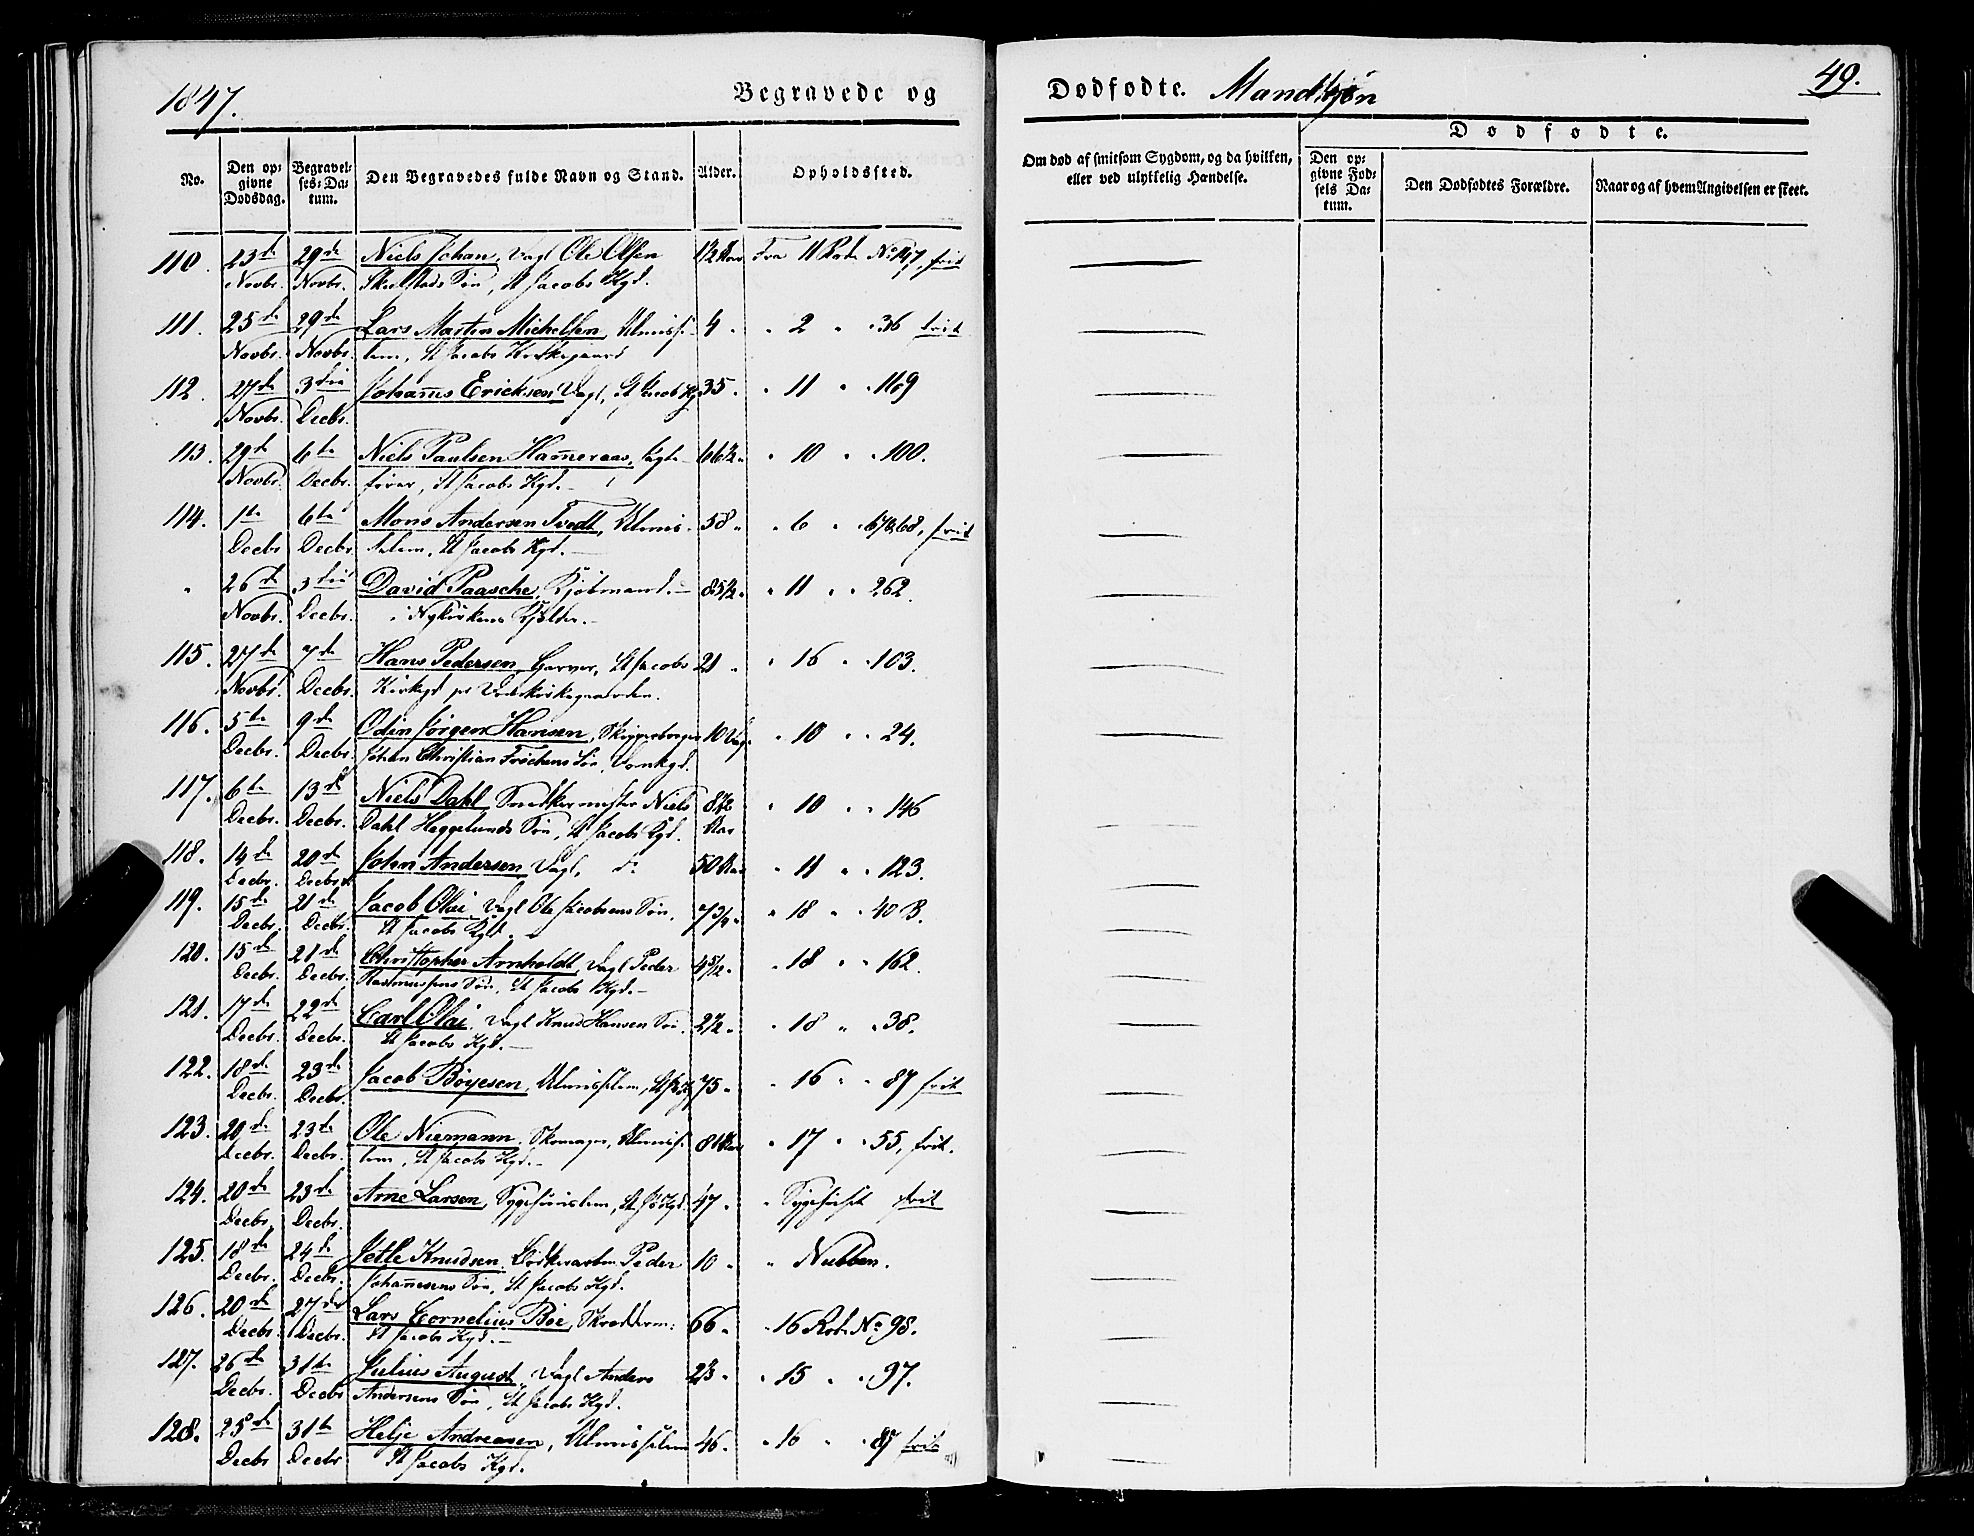 1847.
Begravede og
Dodfodte. Mandkjøn
49.
No.
Den opgivne Dodsdag.
Begravelses-Datum.
Den Begravedes fulde Navn og Stand.
Alder.
Opholdssted.
Om dod af smitsom Sygdom, og da hvilken, eller ved ulykkelig Hændelse.
Dodfodte.
Den opgivne Fodsels Datum.
Den Dodfodtes Forældre.
Naar og af hvem Angivelsen er skeet.
110. 23de 29de Niels Johan, Vagt Ole Olsen 11 Rode No 147, frit
Novbr. Novbr. Søn, St Jacobs Kgd.
111. 25de 29de Lars Martin Michelsen, Almisse- 4 " " 2 " " 36 frit
Novbr. Novbr. lem, St Jacobs Kirkegaard
112. 27de 3die Johannes Ericksen Vagt, St Jacobs Kgd 35 " " 11 " " 119
Novbr. Decbr.
113. 29de 6te Niels Paulsen Hammeraas, Fragt- 66½ " " 10 " " 100.
Novbr. Decbr. fører, St Jacobs Kgd.
114. 1ste 6te Mons Andersen Tvedt, Almis- 58 " " 6 " " 67&68, frit
Decbr. Decbr. selem, St Jacobs Kgd.
" 26de 3die David Paasche, Kjøbmand. 85½ " " 11 " " 262.
Novbr. Decbr. i Nykirkens Kjelder.
115. 27de 7de Hans Pedersen, Garver, St Jacobs 21 " " 16 " " 103.
Novbr. Decbr. Kirkegd
116. 5te 9de Odin Jørgen Hansen, Skipperborger 10 Dag " 10 " " 24.
Decbr. Decbr. Johan Christian Søn, Domkgd.
117. 6te 13de Niels Dahl Snedkermester Niels 8½ " 10 " " 146
Decbr. Decbr. Dahl Heggelunds Søn, St Jacobs Kgd. Aar
118. 14de 20de John Andersen, Vagt, do 50 Aar " 11 " " 123.
Decbr. Decbr.
119. 15de 21de Jacob Olai, Vagt Ole Jacobsens Søn, 7¾ " " 18 " " 40 B.
Decbr. Decbr. St Jacobs Kgd.
120. 15de 21de Christopher Arnholdt, Vagt Peder 4 5/12 " " 18 " " 162.
Decbr. Decbr. Rasmussens Søn, St Jacobs Kgd.
121. 17de 22de Carl Olai, Vagt Knud Hansen Søn, 2½ " " 18 " " 38.
Decbr. Decbr. St Jacobs Kgd.
122. 18de 23de Jacob Böyesen, Almisselem, St J Kgd 75 " " 16 " " 87 frit
Decbr. Decbr.
123. 20de 23de Ole Niemann, Skomager, Almisse- 81 Aar " 17 " " 55, frit.
Decbr. Decbr. lem, St Jacobs Kgd.
124. 20de 23de Arne Larsen, Sygehuuslem, St J Kgd 47 " " Sygehuset frit
Decbr. Decbr.
125. 18de 24de Jetle Knudsen, Peder 10 " " Nubben.
Decbr. Decbr. Johannesens Søn, St Jacobs Kgd.
126. 20de 27de Lars Cornelius Böe, Skrædderm: 66 " " 16 Rode No 98.
Decbr. Decbr. St Jacobs Kgd.
127. 26de 31te Julius August, Vagt Anders " 15 " " 97.
Decbr. Decbr Andersens Søn, St Jacobs Kgd.
128. 25de 31te Helje Andreasen, Almisselem 46 " " 16 " " 87 frit
Decbr Decbr St Jacobs Kgd.